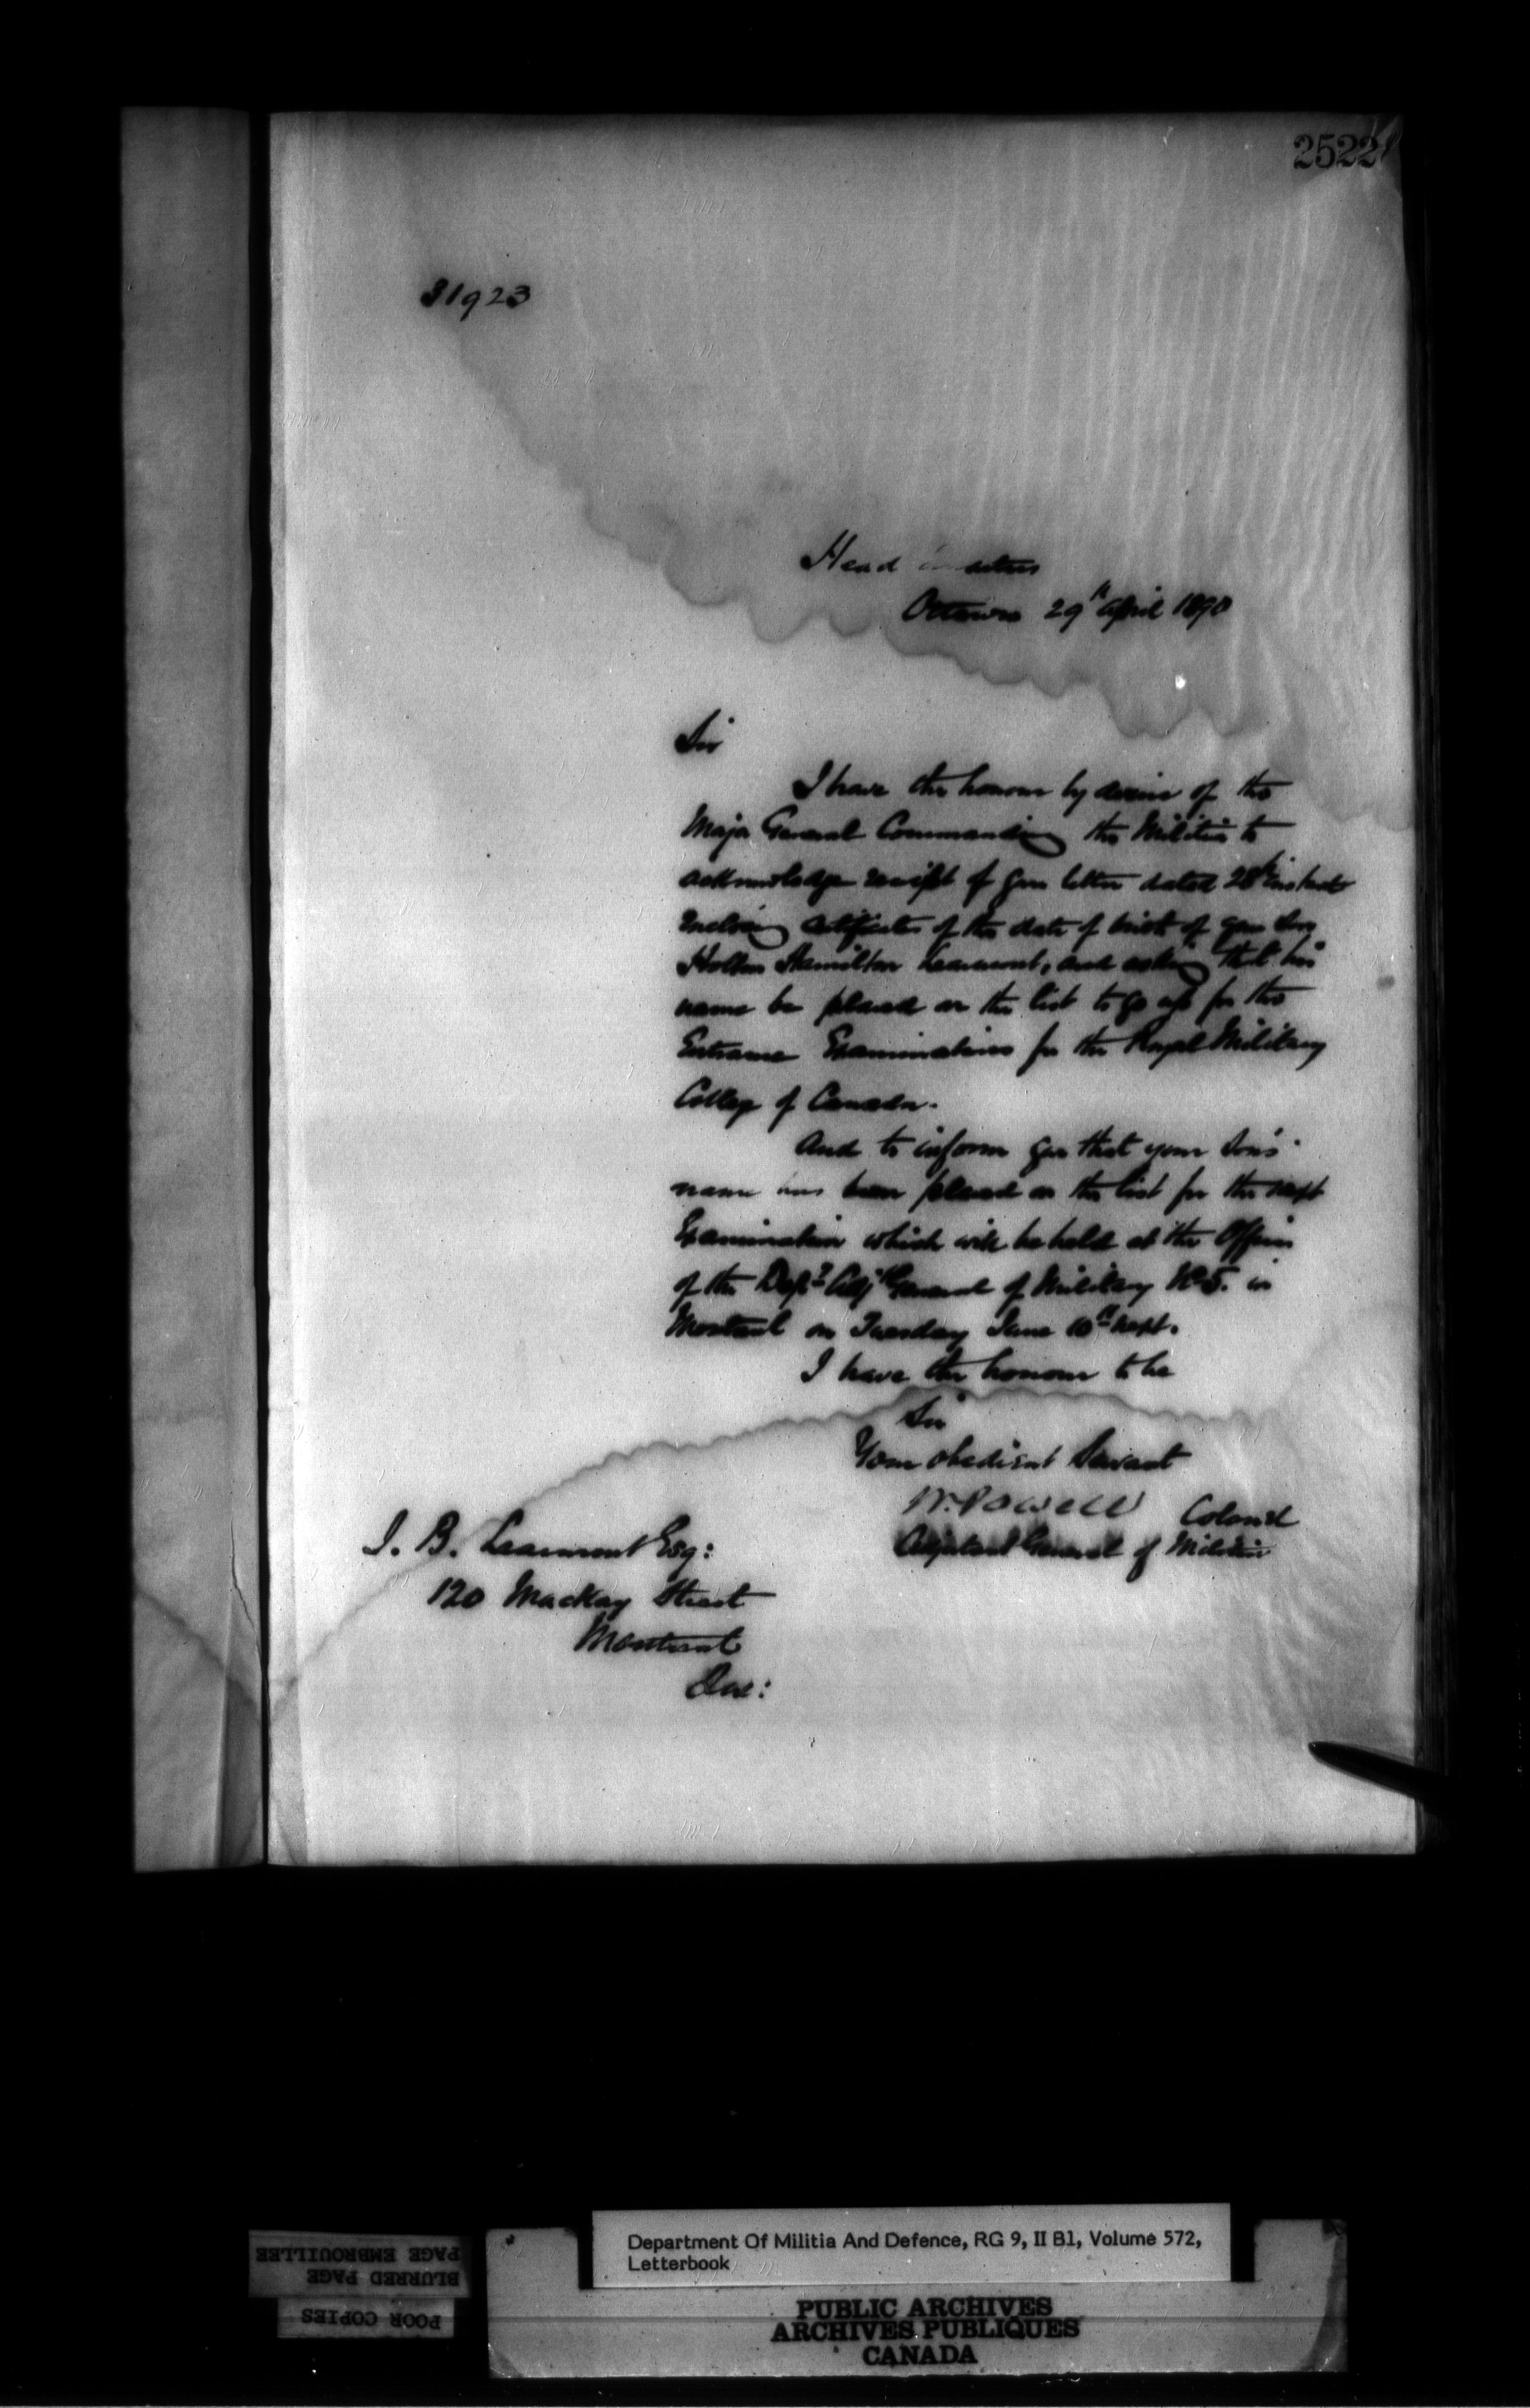 2522
31923
Head
Ottawa 29th April 1890
Sir
I have the honour by desire of the
Major General Commanding the Militia to
acknowledge receipt of your letter dated 28th instant
enclosing certificate of the date of birth of your son
Holton Hamilton Learmont, and asking that his
name be placed on the list to go up for the
Entrance Examination for the Royal Military
College of Canada.
And to inform you that your son's
name has been placed on the list for the next
Examination which will be held at the Office
of the Depy Adjt General of Military No 5. in
Montreal on Tuesday June 10th next.
I have the honour to be
Sir
Your obedient Servant
W. Powell Colonel
Adjutant General of Militia
J. B. Learmont Esq:
120 Mackay Street
Montreal
Que:
Department Of Militia And Defence, RG 9, II B1, Volume 572,
Letterbook
PAGE EMBROUILLEE
BLURRED PAGE
POOR COPIES
PUBLIC ARCHIVES
ARCHIVES PUBLIQUES
CANADA